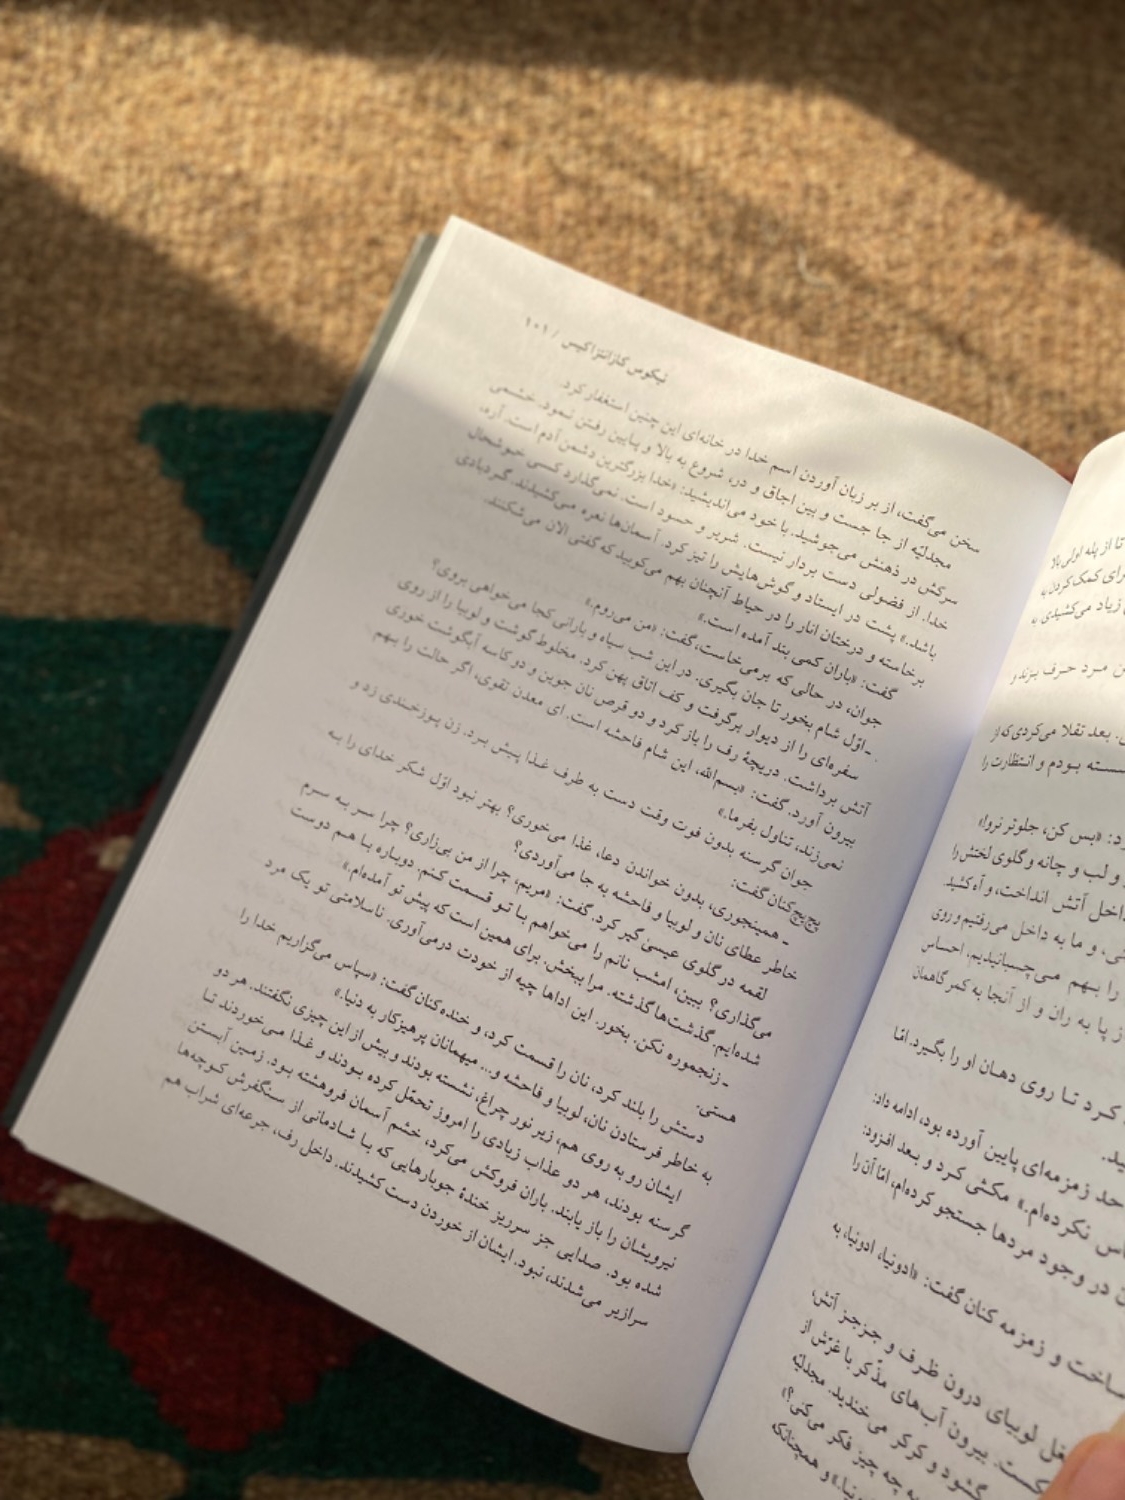 نیکوس کازانتزاکیس / ۱۰۱
سخن می‌گفت، از بر زبان آوردن اسم خدا در خانه‌ای این چنین استغفار کرد.
مجدلیّه از جا جست و بین اجاق و در، شروع به بالا و پایین رفتن نمود. خشمی
سرکش در ذهنش می‌جوشید. با خود می‌اندیشید: «خدا بزرگترین دشمن آدم است. آره،
خدا. از فضولی دست بردار نیست. شریر و حسود است. نمی‌گذارد کسی خوشحال
باشد.» پشت در ایستاد و گوش‌هایش را تیز کرد. آسمان‌ها نعره می‌کشیدند. گردبادی
برخاسته و درختان انار را در حیاط آنچنان بهم می‌کوبید که گفتی الان می‌شکنند.
گفت: «باران کمی بند آمده است.»
جوان، در حالی که برمی‌خاست، گفت: «من می‌روم.»
ـ اوّل شام بخور تا جان بگیری. در این شب سیاه و بارانی کجا می‌خواهی بروی؟
سفره‌ای را از دیوار برگرفت و کف اتاق پهن کرد. مخلوط گوشت و لوبیا را از روی
آتش برداشت. دریچهٔ رف را باز کرد و دو قرص نان جوین و دو کاسه آبگوشت خوری
بیرون آورد. گفت: «بسم‌الله، این شام فاحشه است. ای معدن تقوی، اگر حالت را بهم
نمی‌زند، تناول بفرما.»
جوان گرسنه بدون فوت وقت دست به طرف غذا پیش برد. زن پوزخندی زد و
پچ‌پچ‌کنان گفت:
ـ همینجوری، بدون خواندن دعا، غذا می‌خوری؟ بهتر نبود اوّل شکر خدای را به
خاطر عطای نان و لوبیا و فاحشه به جا می‌آوردی؟
لقمه در گلوی عیسیٰ گیر کرد. گفت: «مریم، چرا از من بی‌زاری؟ چرا سر به سرم
می‌گذاری؟ ببین، امشب نانم را می‌خواهم با تو قسمت کنم. دوباره با هم دوست
شده‌ایم. گذشت‌ها گذشته. مرا ببخش. برای همین است که پیش تو آمده‌ام.»
ـ زنجموره نکن. بخور. این اداها چیه از خودت درمی‌آوری. ناسلامتی تو یک مرد
هستی.
دستش را بلند کرد، نان را قسمت کرد، و خنده‌کنان گفت: «سپاس می‌گزاریم خدا را
به خاطر فرستادن نان، لوبیا و فاحشه و... میهمانان پرهیزکار به دنیا.»
ایشان رو به روی هم، زیر نور چراغ، نشسته بودند و بیش از این چیزی نگفتند. هر دو
گرسنه بودند، هر دو عذاب زیادی را امروز تحمّل کرده بودند و غذا می‌خوردند تا
نیرویشان را باز یابند. باران فروکش می‌کرد، خشم آسمان فروهشته بود. زمین آبستن
شده بود. صدایی جز سرریز خندهٔ جوبارهایی که با شادمانی از سنگفرش کوچه‌ها
سرازیر می‌شدند، نبود. ایشان از خوردن دست کشیدند. داخل رف، جرعه‌ای شراب هم
تا از پله اولی بالا
برای کمک کردن به
زیاد می‌کشیدی. به
مرد حرف بزند و
بعد تقلا می‌کردی که از
بودم و انتظارت را
«بس کن، جلوتر نرو!»
و لب و چانه و گلوی لختش را
داخل آتش انداخت، و آه کشید.
و ما به داخل می‌رفتیم و روی
را بهم می‌چسبانیدیم، احساس
از پا به ران و از آنجا به کمرگاهمان
کرد تا روی دهان او را بگیرد. امّا
حد زمزمه‌ای پایین آورده بود، ادامه داد:
نکرده‌ام.» مکثی کرد و بعد افزود:
در وجود مردها جستجو کرده‌ام، امّا آن را
و زمزمه کنان گفت: «ادونیا، ادونیا، به
لوبیای درون ظرف و جزجز آتش،
بیرون آب‌های مذّکر با غرّش از
گشود و کرکر می‌خندید. مجدلیّه
به چه چیز فکر می‌کنی؟»
و همچنانکه